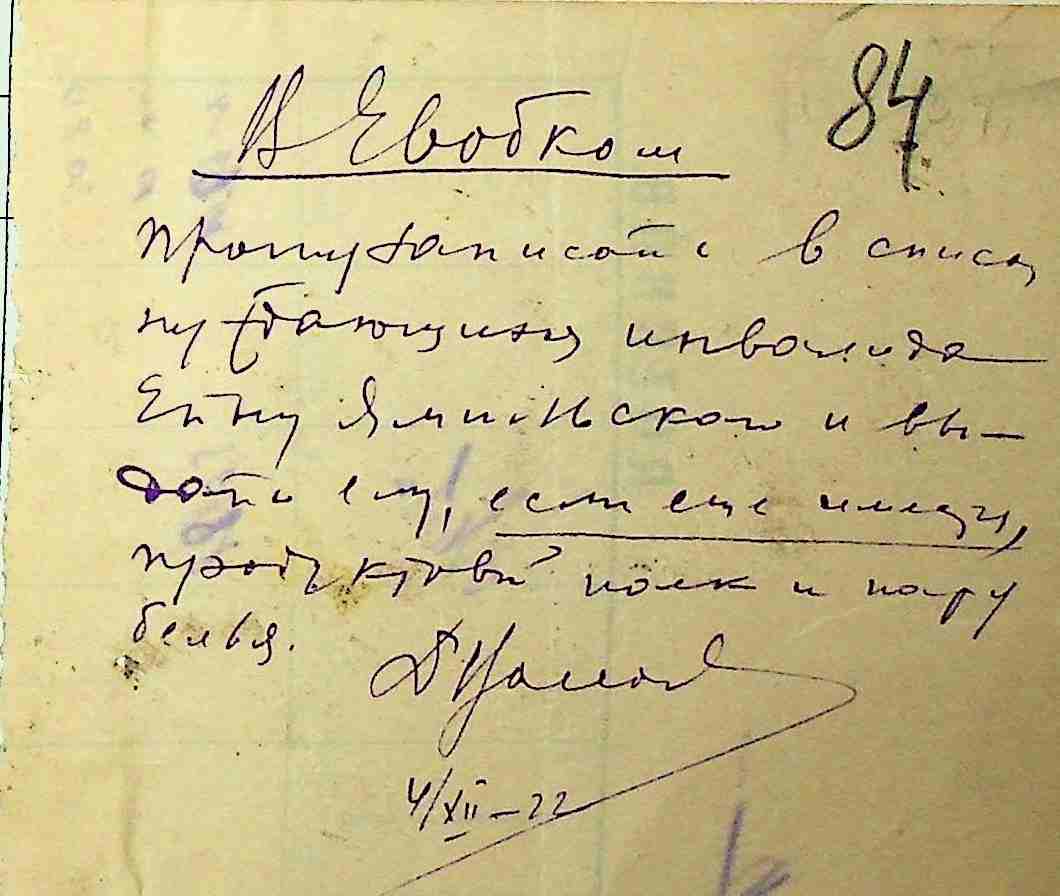 84
В Евобком
Прошу записать в список
нуждающихся инвалида
Ямпольского и вы-
дать ему, если еще имеется,
продуктовый паек и пару
белья.
4/XII–22